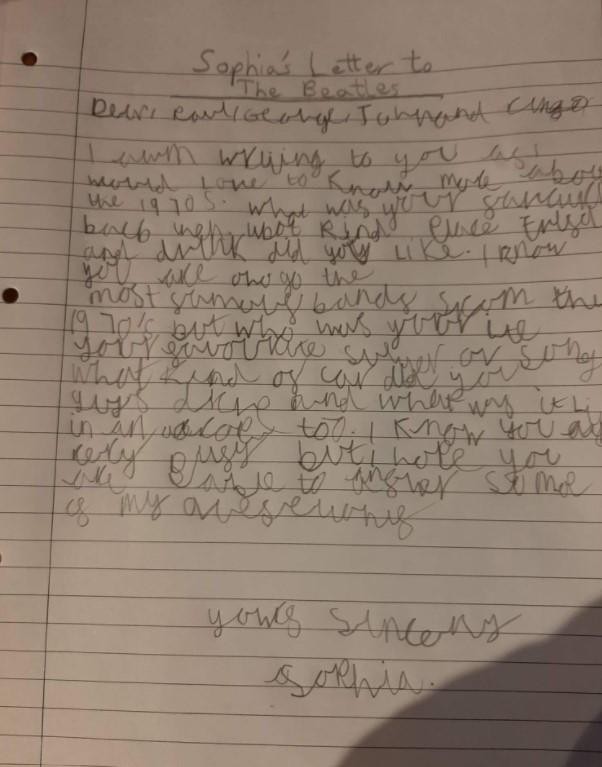 Sophia's Letter to
The Beatles
Dear, Paul, George, John and
I am writing to you as I
would love to know more about
the 1970s. What was your
back then, what kind
and drink did you like. I know
you are the
most bands from the
1970's but who was your
your favourite singer or song
What kind of car did you
guys and what was it
in an too. I know you are
very busy but I hope you
are able to answer some
of my questions
yours sincerly
Sophia.